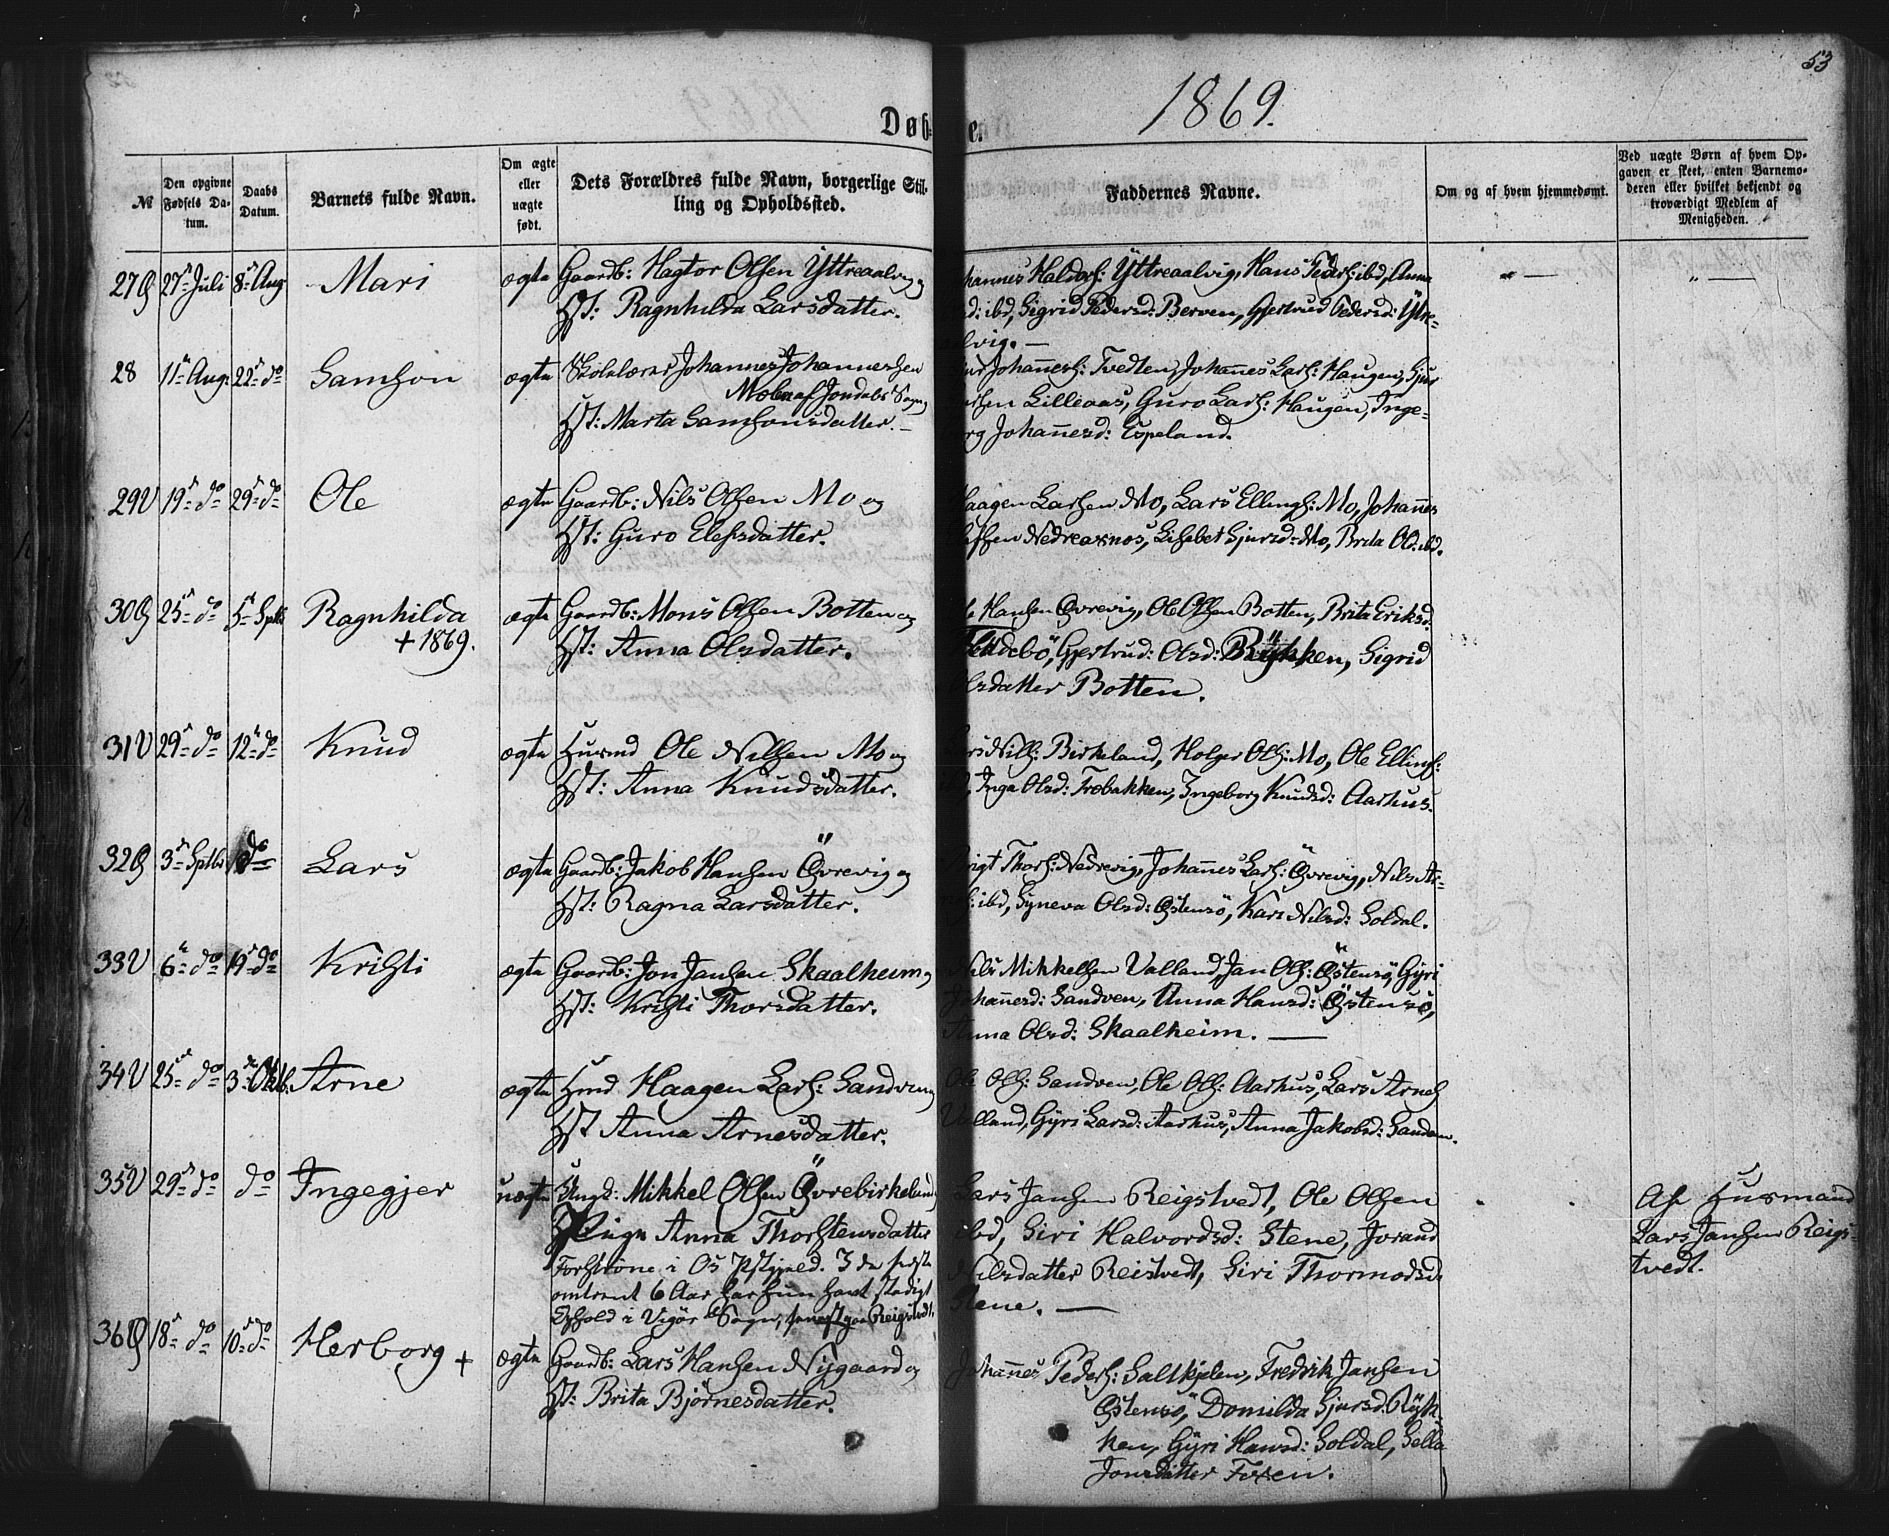 53
1869.
Døbte.
№
Den opgivne Fødsels Datum.
Daabs Datum.
Barnets fulde Navn.
Om ægte eller uægte født.
Dets Forældres fulde Navn, borgerlige Stilling og Opholdssted.
Faddernes Navne.
Om og af hvem hjemmedømt.
Ved uægte Børn af hvem Opgaven er skeet, enten Barnemoderen eller hvilket bekjendt og troværdigt Medlem af Menigheden.
27 Ø 27de Juli 8de Aug Mari ægte Gaardb: Hagtor Olsen Yttreaalvig og
Hst: Ragnhilda Larsdatter.
hannes Haldors: Yttreaalvig, Hans Peders: ibd, Anna
d: ibd, Sigrid Pedersd: Berven, Gjertrud Pedersd: Ytre-
lvig. —
" —
" —
28 11te Aug: 22de do Samson ægte Skolelærer Johannes Johannessen
Moberaf Jondals Sogn
Hst: Marta Samsonsdatter. —
Johanes: Tvedten, Johanes Lars: Haugen, Sjur
Lilleaas, Guro Lars: Haugen, Inge-
rg Johanesd: Espeland.
29 V 19de do 29de do Ole ægte Gaardb: Nils Olsen Mo og
Hst: Guro Elefsdatter.
Haagen Larsen Mo, Lars Ellings: Mo, Johanes
Nedreaxnos, Lisabet Sjursd: Mo, Brita Ol: ibd.
30 Ø 25de do 5te Sptb Ragnhilda ægte Gaardb: Mons Olsen Botten og
+ 1869.
Hst: Anna Olsdatter.
Hansen Øvrevig, Ole Olsen Botten, Brita Eriksd:
Gjertrud: Olsd: Rÿkken, Sigrid
lsdatter Botten.
31 V 29de do 12te do Knud ægte Husmd Ole Nilsen Mo og
Hst: Anna Knudsdatter.
rs Nils: Birkeland, Holger Ols: Mo, Ole Ellings:
Inga Olsd: Træbakken, Ingeborg Knudsd: Aarhus.
32 Ø 3de Sptb do Lars ægte Gaardb: Jakob Hansen Øvrevig og
Hst: Ragna Larsdatter.
Thors: Nedrevig, Johanes Lars: Øvrevig, Nils Ar-
: ibd, Syneva Olsd: Østensö, Kari Nilsd: Soldal.
33 V 6te do 19de do Kristi ægte Gaardb: Jon Jansen Skaalheim og
Hst: Kristi Thorsdatter.
Nils Mikkelsen Valland, Jan Ols: Østensö, Gÿri
Johanesd: Sandven, Anna Hansd: Østensö,
Anna Olsd: Skaalheim. —
34 V 25de do 3de Oktb. Arne ægte Hmd Haagen Lars: Sandven og
Hst Anna Arnesdatter.
Ole Ols: Sandven, Ole Ols: Aarhus, Lars Arnes
Valland, Gÿri Larsd: Aarhus, Anna Jakobsd: Sandven.
35 V 29de do do Ingegjer uægte Ungk: Mikkel Olsen Øvrebirkeland
Pige Anna Thorstensdatter
Forstrøne i Os Pstgjæld. I de sidste
omtrent 6 Aar har hun havt stadigt
Ophold i Vigör Sogn, senest paa Reigstvedt.
Lars Jansen Reigstvedt, Ole Olsen
ibd, Siri Halvordsd: Stene, Jorand
Nilsdatter Reistvedt, Siri Thormodsd:
Stene. —
Af Husmand
Lars Jansen Reigs-
tvedt.
36 Ø 18de do 10de do Herborg + ægte Gaardb: Lars Hansen Nygaard og
Hst: Brita Bjørnesdatter.
Johanes Peders: Saltkjelen, Fredrik Jansen
Østensö, Domilda Sjursd: Rÿk-
ken, Gÿri Hansd: Soldal, Sella
Jonsdatter Foxen.